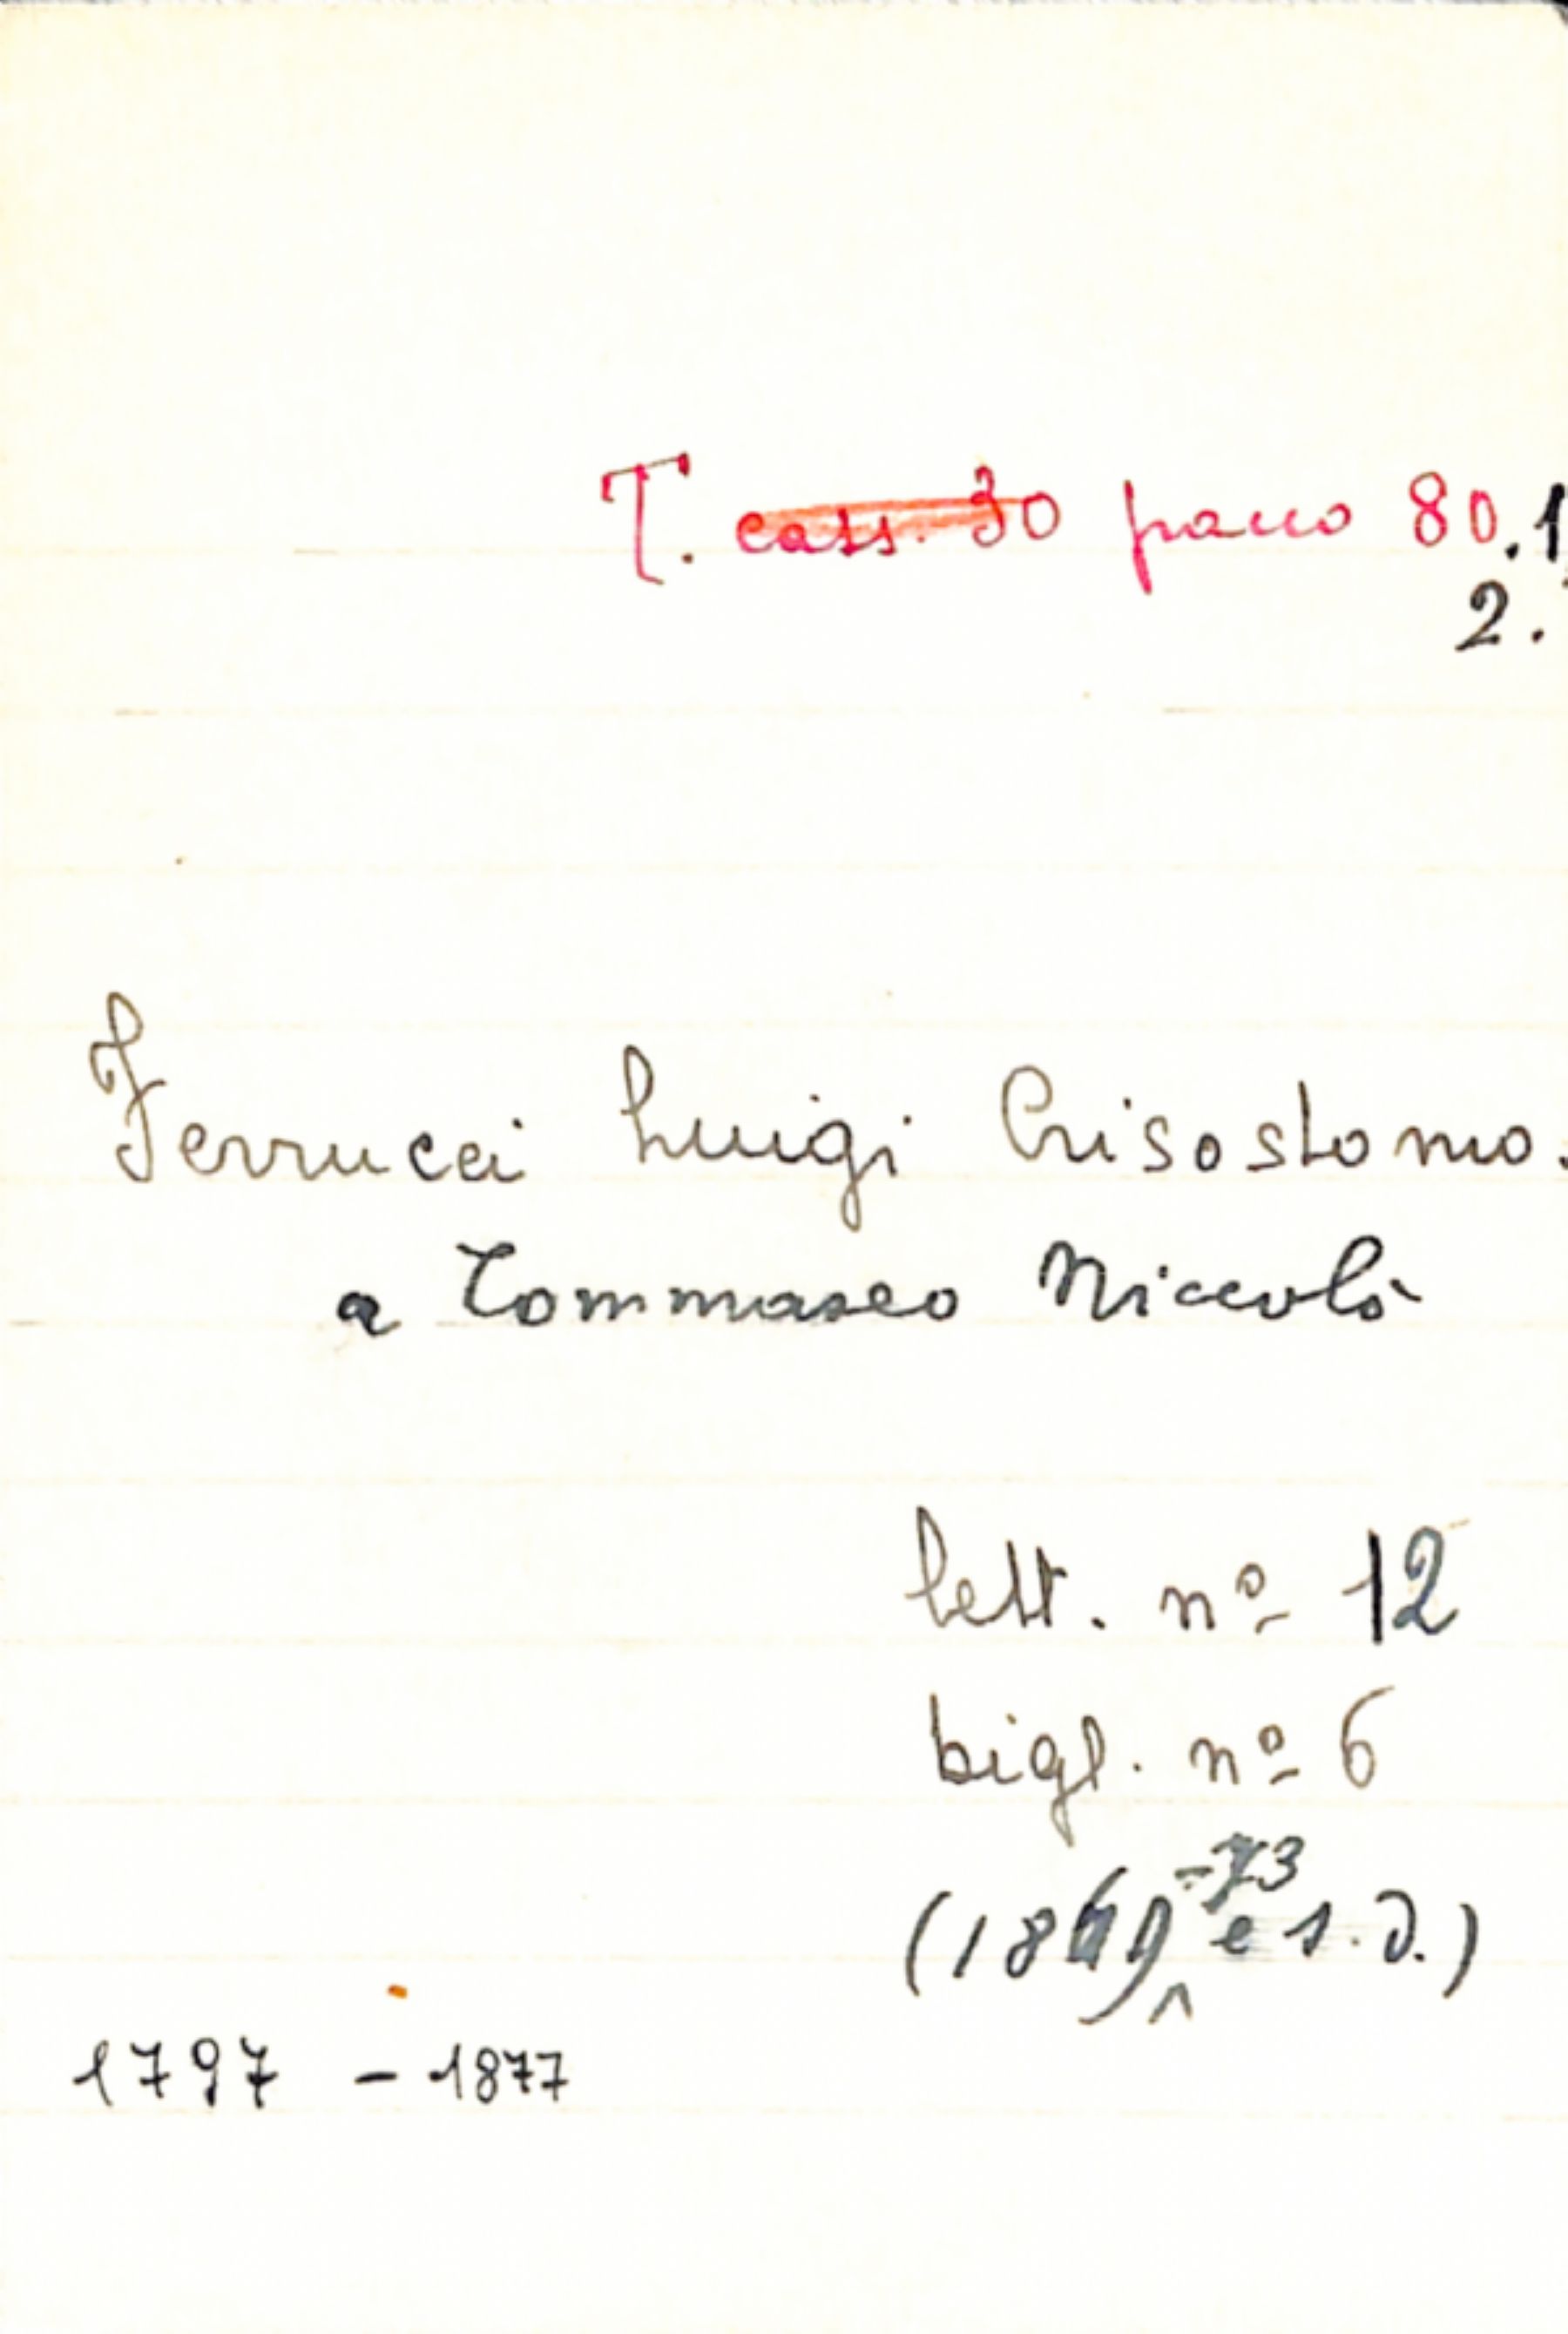 T. cass. 30 pacco 80.1
2.
Ferrucci Luigi Crisostomo.
a Tommaseo Niccolò
lett. nº 12
bigl. nº 6
(1869-73 e s.d.)
1797 - 1877